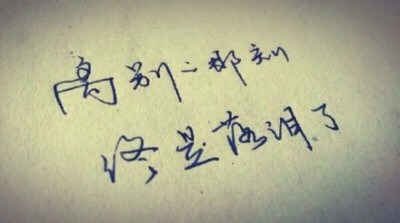 离别那刻
终是落泪了